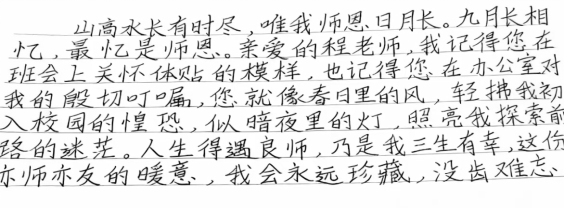 山高水长有时尽，唯我师恩日月长。九月长相
忆，最忆是师恩。亲爱的程老师，我记得您在
班会上关怀体贴的模样，也记得您在办公室对
我的殷切叮嘱，您就像春日里的风，轻拂我初
入校园的惶恐，似暗夜里的灯，照亮我探索前
路的迷茫。人生得遇良师，乃是我三生有幸，这份
亦师亦友的暖意，我会永远珍藏，没齿难忘